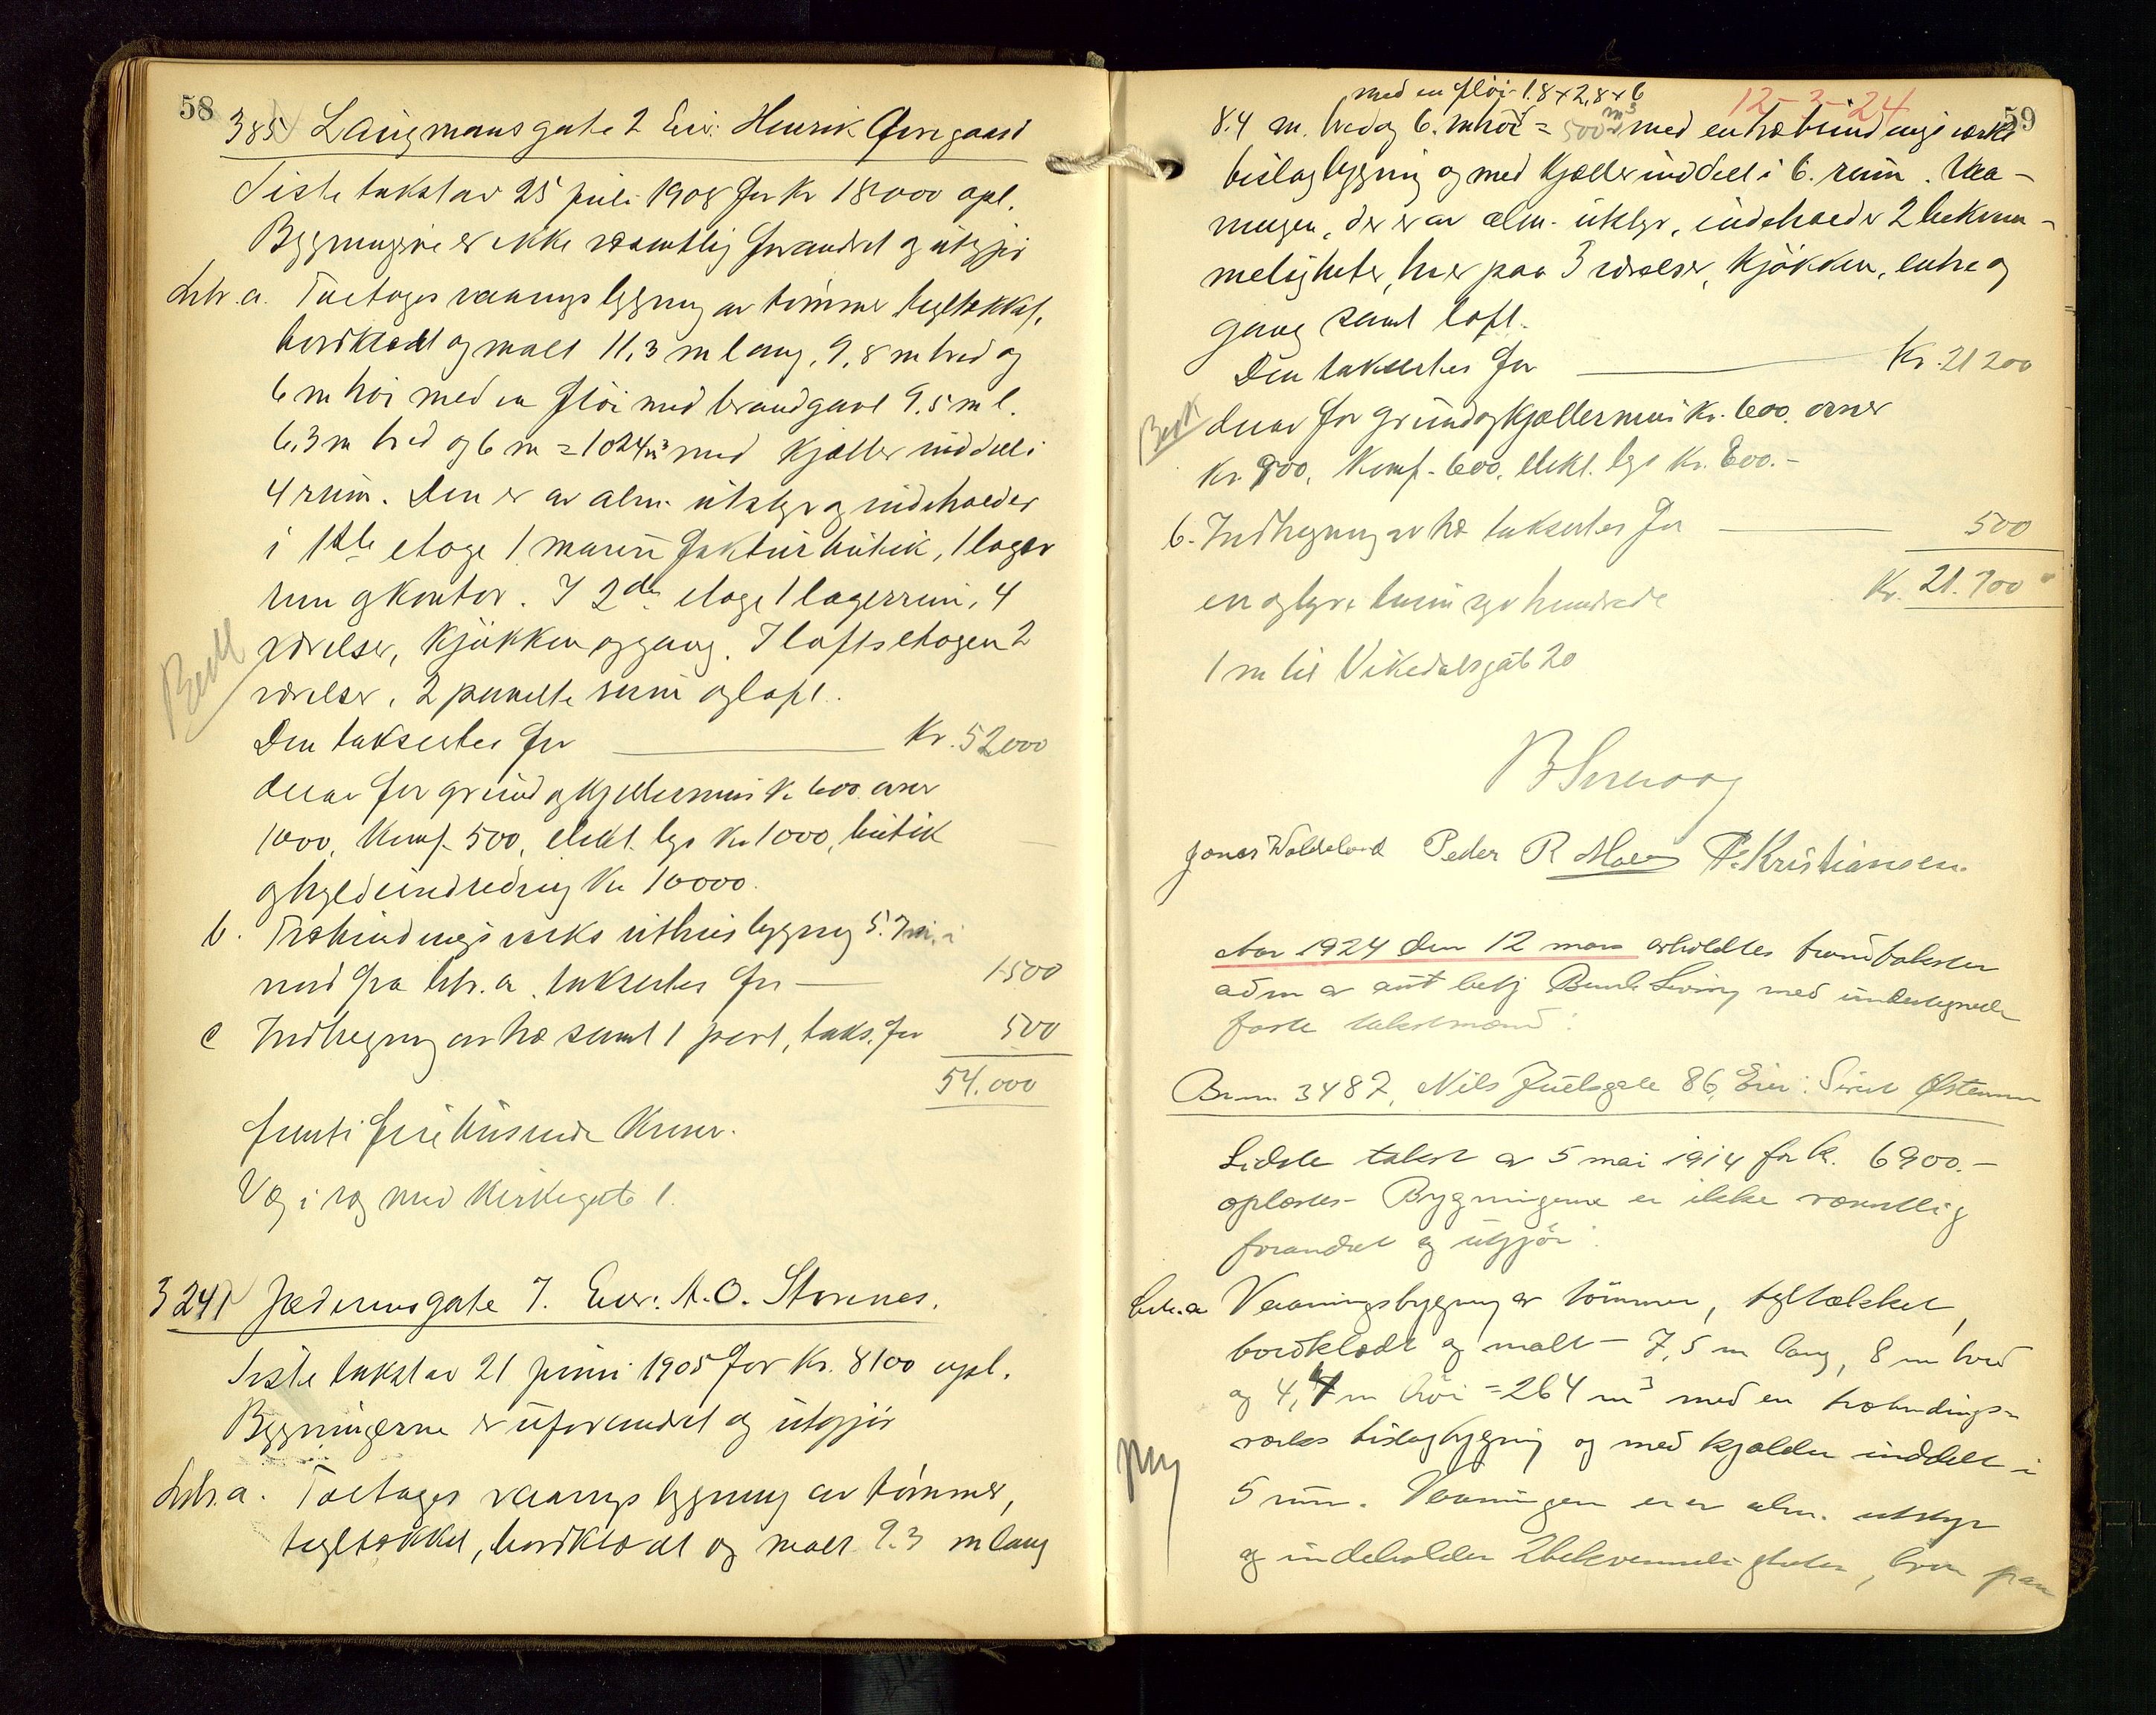 58
385 Langmansgate 2 Eier: Henrik
Siste takst av 25 juli 1908 for Kr 18000 opl.
Bygningerne er ikke væsentlig forandret og utgjør
Litr. a. Toetages vaaningsbygning av tømmer tegltækket,
bordklædt og malt 11,3 m lang, 9,8 m bred og
6 m høi med en fløi med brandgavl 9.5 m l.
6,3 m bred og 6 m = 1024 m³ med kjælder inddelt i
4 rum. Den er av alm. utstyr og indeholder
i 1ste etage 1 manufakturbutik, 1 lager
rum og kontor. I 2den etage 1 lagerrum, 4
værelser, kjøkken og gang. I loftsetagen 2
værelser, 2 panelte rum og loft.
Den takseres for Kr. 52000
derav for grund og kjældermur Kr 600 ovner
1000, Komf. 500, elekt. lys Kr 1000, butik
og hyldeindredning Kr 10000.
b. Træbindingsverks uthusbygning 5.7 m.
nord fra litr. a. takseres for 1500
c Indhegning av træ samt 1 port, taks. for 500
54.000
femti fire tusende Kroner.
Væg i væg med Kirkegate 1.
3241 Jæderensgate 7. Eier: A. O. Stornes.
Siste takst av 21 juni 1905 for Kr. 8100 opl.
Bygningerne er uforandret og utgjør
Litr. a. Toetages vaaningsbygning av tømmer,
tegltækket, bordklædt og malt 9.3 m lang
12-3-24
59
med en fløi 1.8 x 2,8 x 6
8.4 m. bred og 6. m høi = 500 m³ med en træbindingsverks
bislagbygning og med kjælder inddelt i 6. rum. Vaa-
ningen, der er av alm. utstyr, indeholder 2 bekvem-
meligheter, hver paa 3 værelser, kjøkken, entre og
gang samt loft.
Den takseres for Kr. 21 200
derav for grund og kjældermur Kr. 600. ovner
Kr. 900, Komf. 600, elekt. lys Kr. 800.-
b. Indhegning av træ takseres for 500
en og tyve tusen syv hundrede Kr. 21.700
1 m til Vikedalsgate 20
Peder R P. Kristiansen.
Aar 1924 den 12 mars avholdtes branntakster
adm av aut betj med undertegnede
faste takstmænd:
Br.nr. 3487, Nils Juelsgate 86, Eier: Sivert
Sidste takst av 5 mai 1914 for kr. 6900.-
oplæstes - Bygningerne er ikke væsentlig
forandret og utgjør:
Litr. a Vaaningsbygning av tømmer, tegltækket,
bordklædt og malt - 7,5 m lang, 8 m bred
og 4,4 m høi = 264 m³ med en træbindings-
verks bislagbygning og med kjælder inddelt i
5 rum. Vaaningen er av alm. utstyr
og indeholder 2 bekvemmeligheter, hver paa